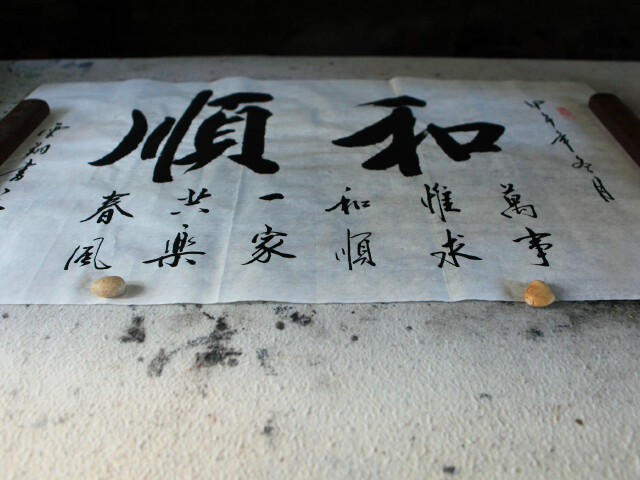 甲午年冬月
和順
萬事
惟求
和順
一家
共樂
春風